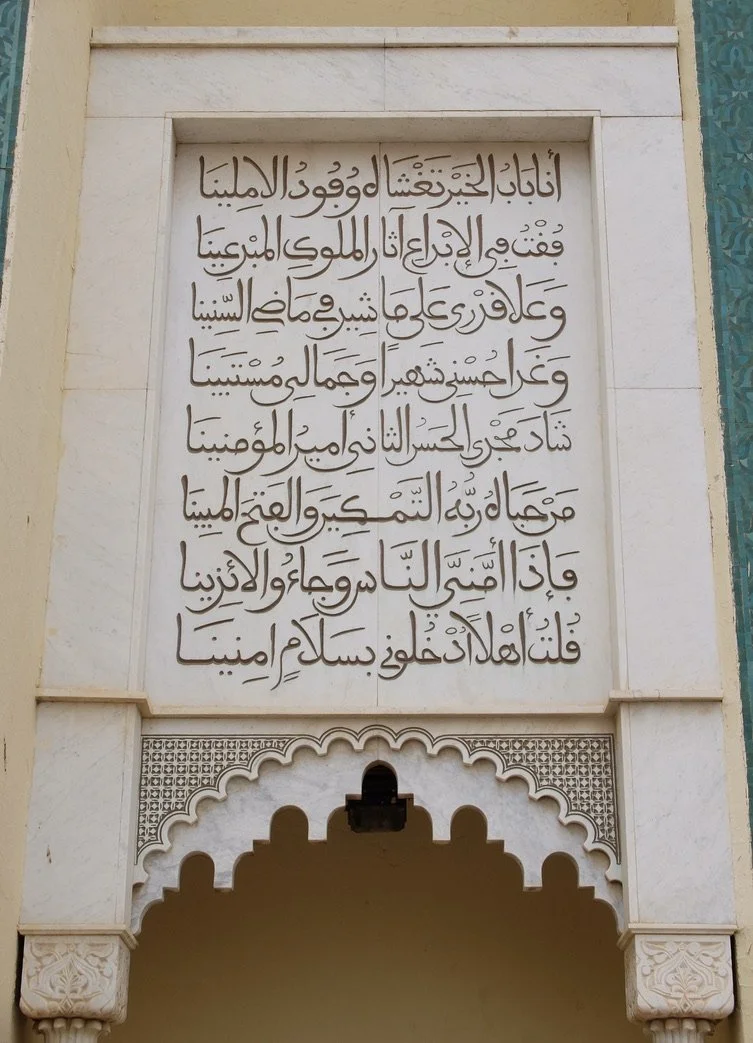 أَنَا بَابُ الخَيْرِ تَغْشَاهُ وُفُودُ الآمِلِينَا
فُقْتُ فِي الإِبْدَاعِ آثَارَ المُلُوكِ المُبْدِعِينَا
وَعَلَا قَدْرِي عَلَى مَا شِيدَ فِي مَاضِي السِّنِينَا
وَغَدَا حُسْنِي شَهِيرًا وَجَمَالِي مُسْتَبِينَا
شَادَ مَجْدِي الحَسَنُ الثَّانِي أَمِيرُ المُؤْمِنِينَا
مَرْحَبًا لَهُ رَبُّهُ التَّمْكِينَ وَالفَتْحَ المُبِينَا
فَإِذَا أَمَّنِيَ النَّاسُ وَجَاءُوا لَائِذِينَا
قُلْتُ أَهْلًا أُدْخُلُونِي بِسَلَامٍ آمِنِينَا